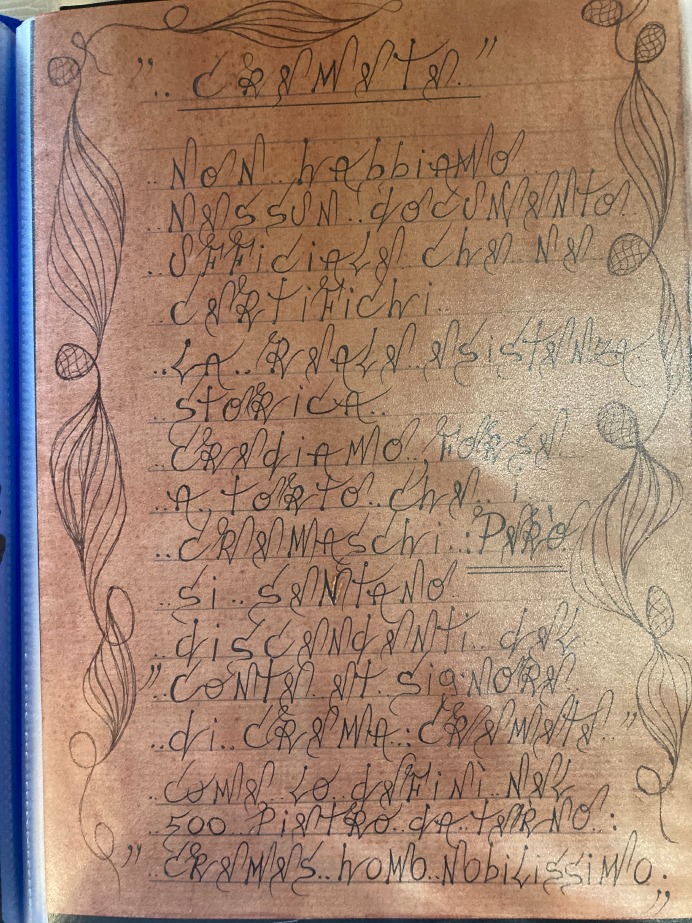 ".. CREMETE.. "
..NON habbiAMO
..NESSUN..dOCUMENTO.
..UFFICIALE chE NE
..CERTIFIChI..
..LA..REALE ESISTENZA
..STORICA..
..CREdIAMO FORSE
..A..TORTO..chE..i
..CREMASchi..:PERÒ
..Si..SENTANO
..diSCENDENTI..dEL
"..CONTE ET SIGNORE
..di..CREMA:CREMETE"
..COME LO dEFINÌ NEL
..500 PiETRO..dA TERNO..:
"..CREMES..hOMO..NObILISSIMO.
"